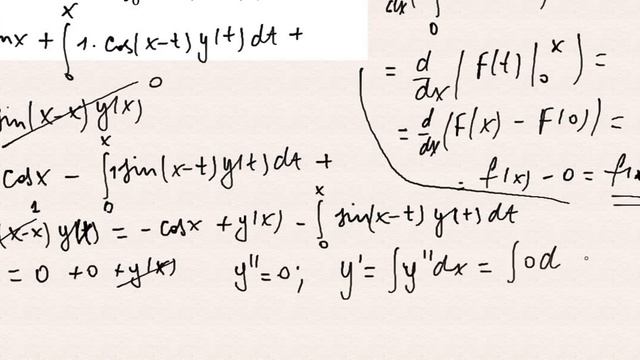 nx + ∫₀ˣ 1· cos(x-t) y(t) dt +
sin(x-x) y(x) 0
cosx - ∫₀ˣ 1 sin(x-t) y(t) dt +
(x-x) 1 y(t) = - cosx + y(x) - ∫₀ˣ sin(x-t) y(t) dt
= 0 + 0 + y(x) y'' = 0; y' = ∫ y'' dx = ∫ 0 d
= d/dx ( F(t) |₀ˣ ) =
= d/dx (F(x) - F(0)) =
= f(x) - 0 = f(x